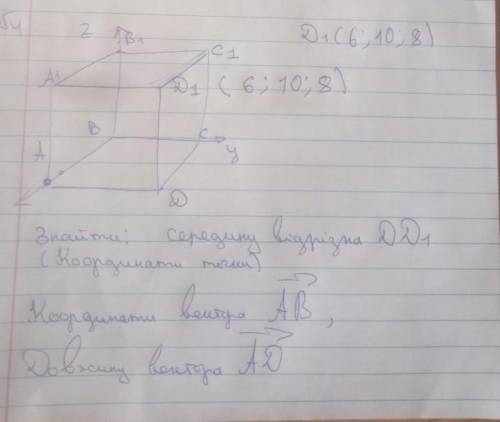 Z B1 C1 D1 (6; 10; 8)
A1 D1 (6; 10; 8)
B C y
A
D
Знайти: середину відрізка DD1
(Координати точки)
Координати вектора AB,
Довжину вектора AD